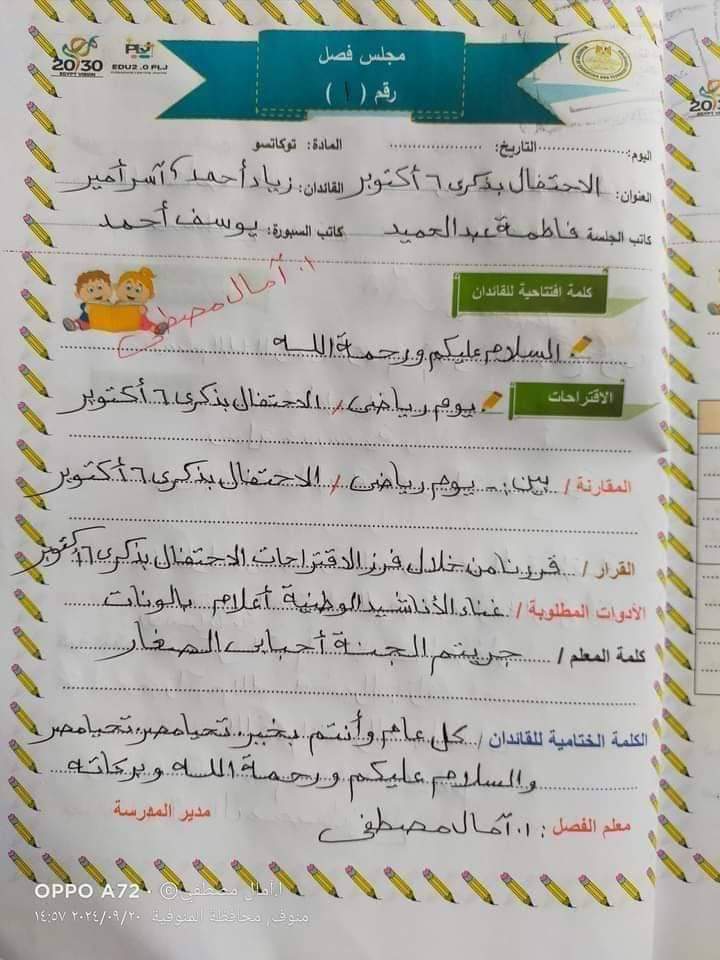 20/30
EGYPT VISION
EDU2.0 PLJ
مجلس فصل
رقم ( ١ )
اليوم: .................... التاريخ: .................... المادة: توكاتسو
العنوان: الاحتفال بذكرى ٦ أكتوبر القائدان: زياد أحمد & آسر أمير
كاتب الجلسة فاطمة عبدالحميد كاتب السبورة: يوسف أحمد
ا. آمال مصطفى
كلمة افتتاحية للقائدان
السلام عليكم ورحمة الله
الاقتراحات
يوم رياضى / الاحتفال بذكرى ٦ أكتوبر
المقارنة / بين :- يوم رياضى / الاحتفال بذكرى ٦ أكتوبر
القرار / قررنا من خلال فرز الاقتراحات الاحتفال بذكرى ٦ أكتوبر
الأدوات المطلوبة / غناء الأناشيد الوطنية أعلام بالونات
كلمة المعلم / جزيتم الجنة أحبابى الصغار
الكلمة الختامية للقائدان / كل عام وأنتم بخير. تحيا مصر. تحيا مصر
والسلام عليكم ورحمة الله وبركاته
معلم الفصل : ا. آمال مصطفى
مدير المدرسة
OPPO A72 · ©ا.امال مصطفى
منوف, محافظة المنوفية ٢٠٢٤/٠٩/٢٠ ١٤:٥٧